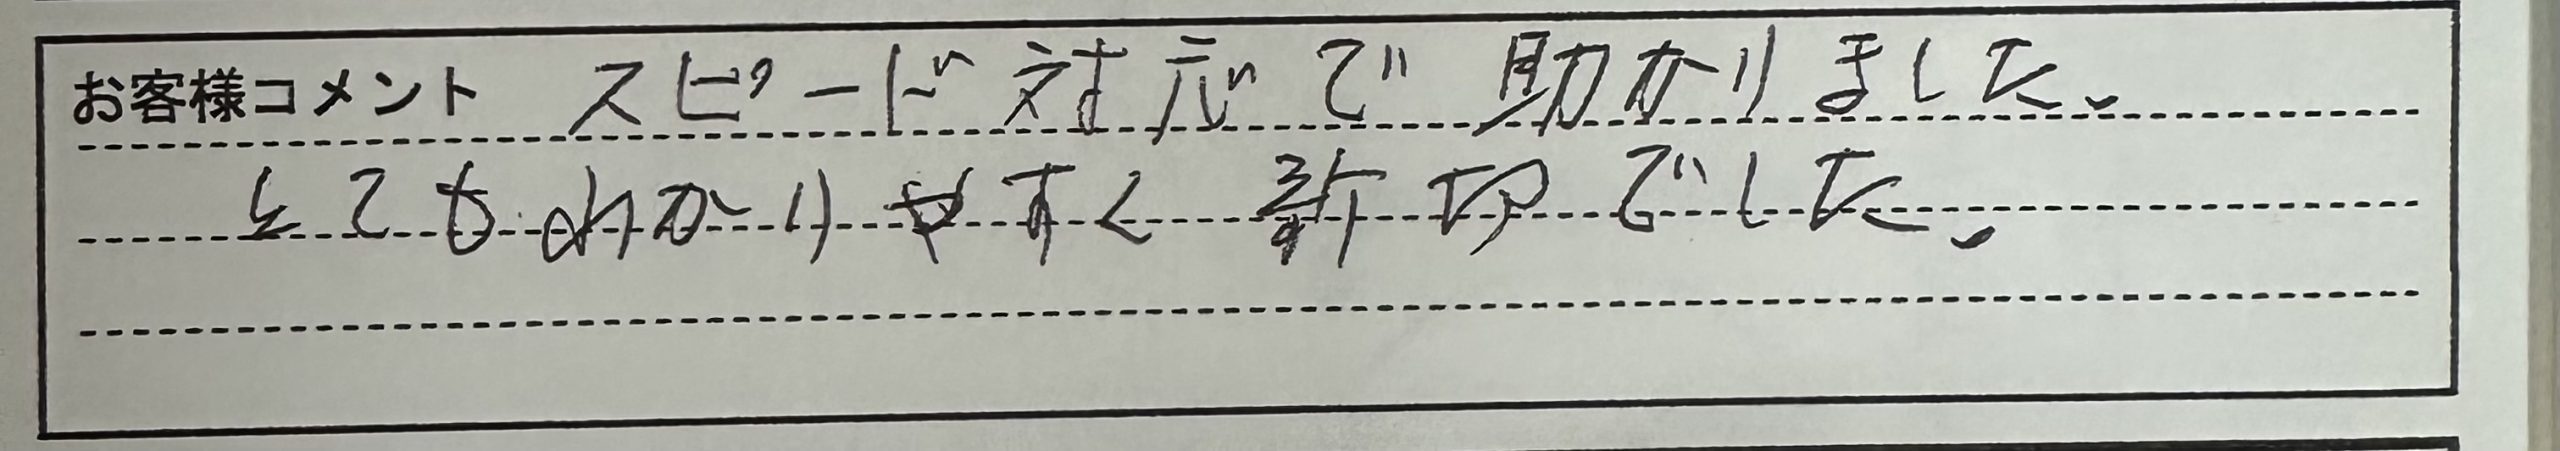 お客様コメント スピード対応で助かりました、
とてもわかりやすく でした、